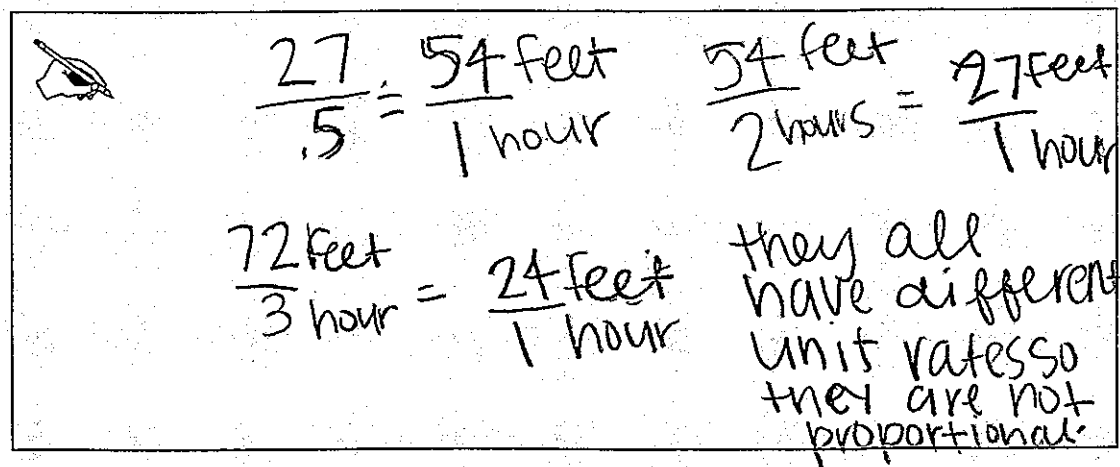 27/.5 = 54 feet/1 hour
54 feet/2 hours = 27 feet/1 hour
72 feet/3 hour = 24 feet/1 hour
they all
have different
unit rates so
they are not
proportional.